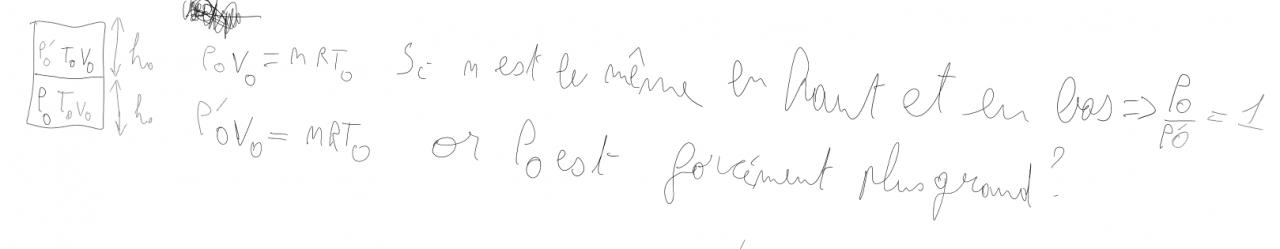 P₀' T₀ V₀
h₀
P₀ T₀ V₀
h₀
P₀V₀ = nRT₀ Si n est le même en haut et en bas => P₀/P₀' = 1
P₀'V₀ = nRT₀ or P₀ est forcément plus grand?